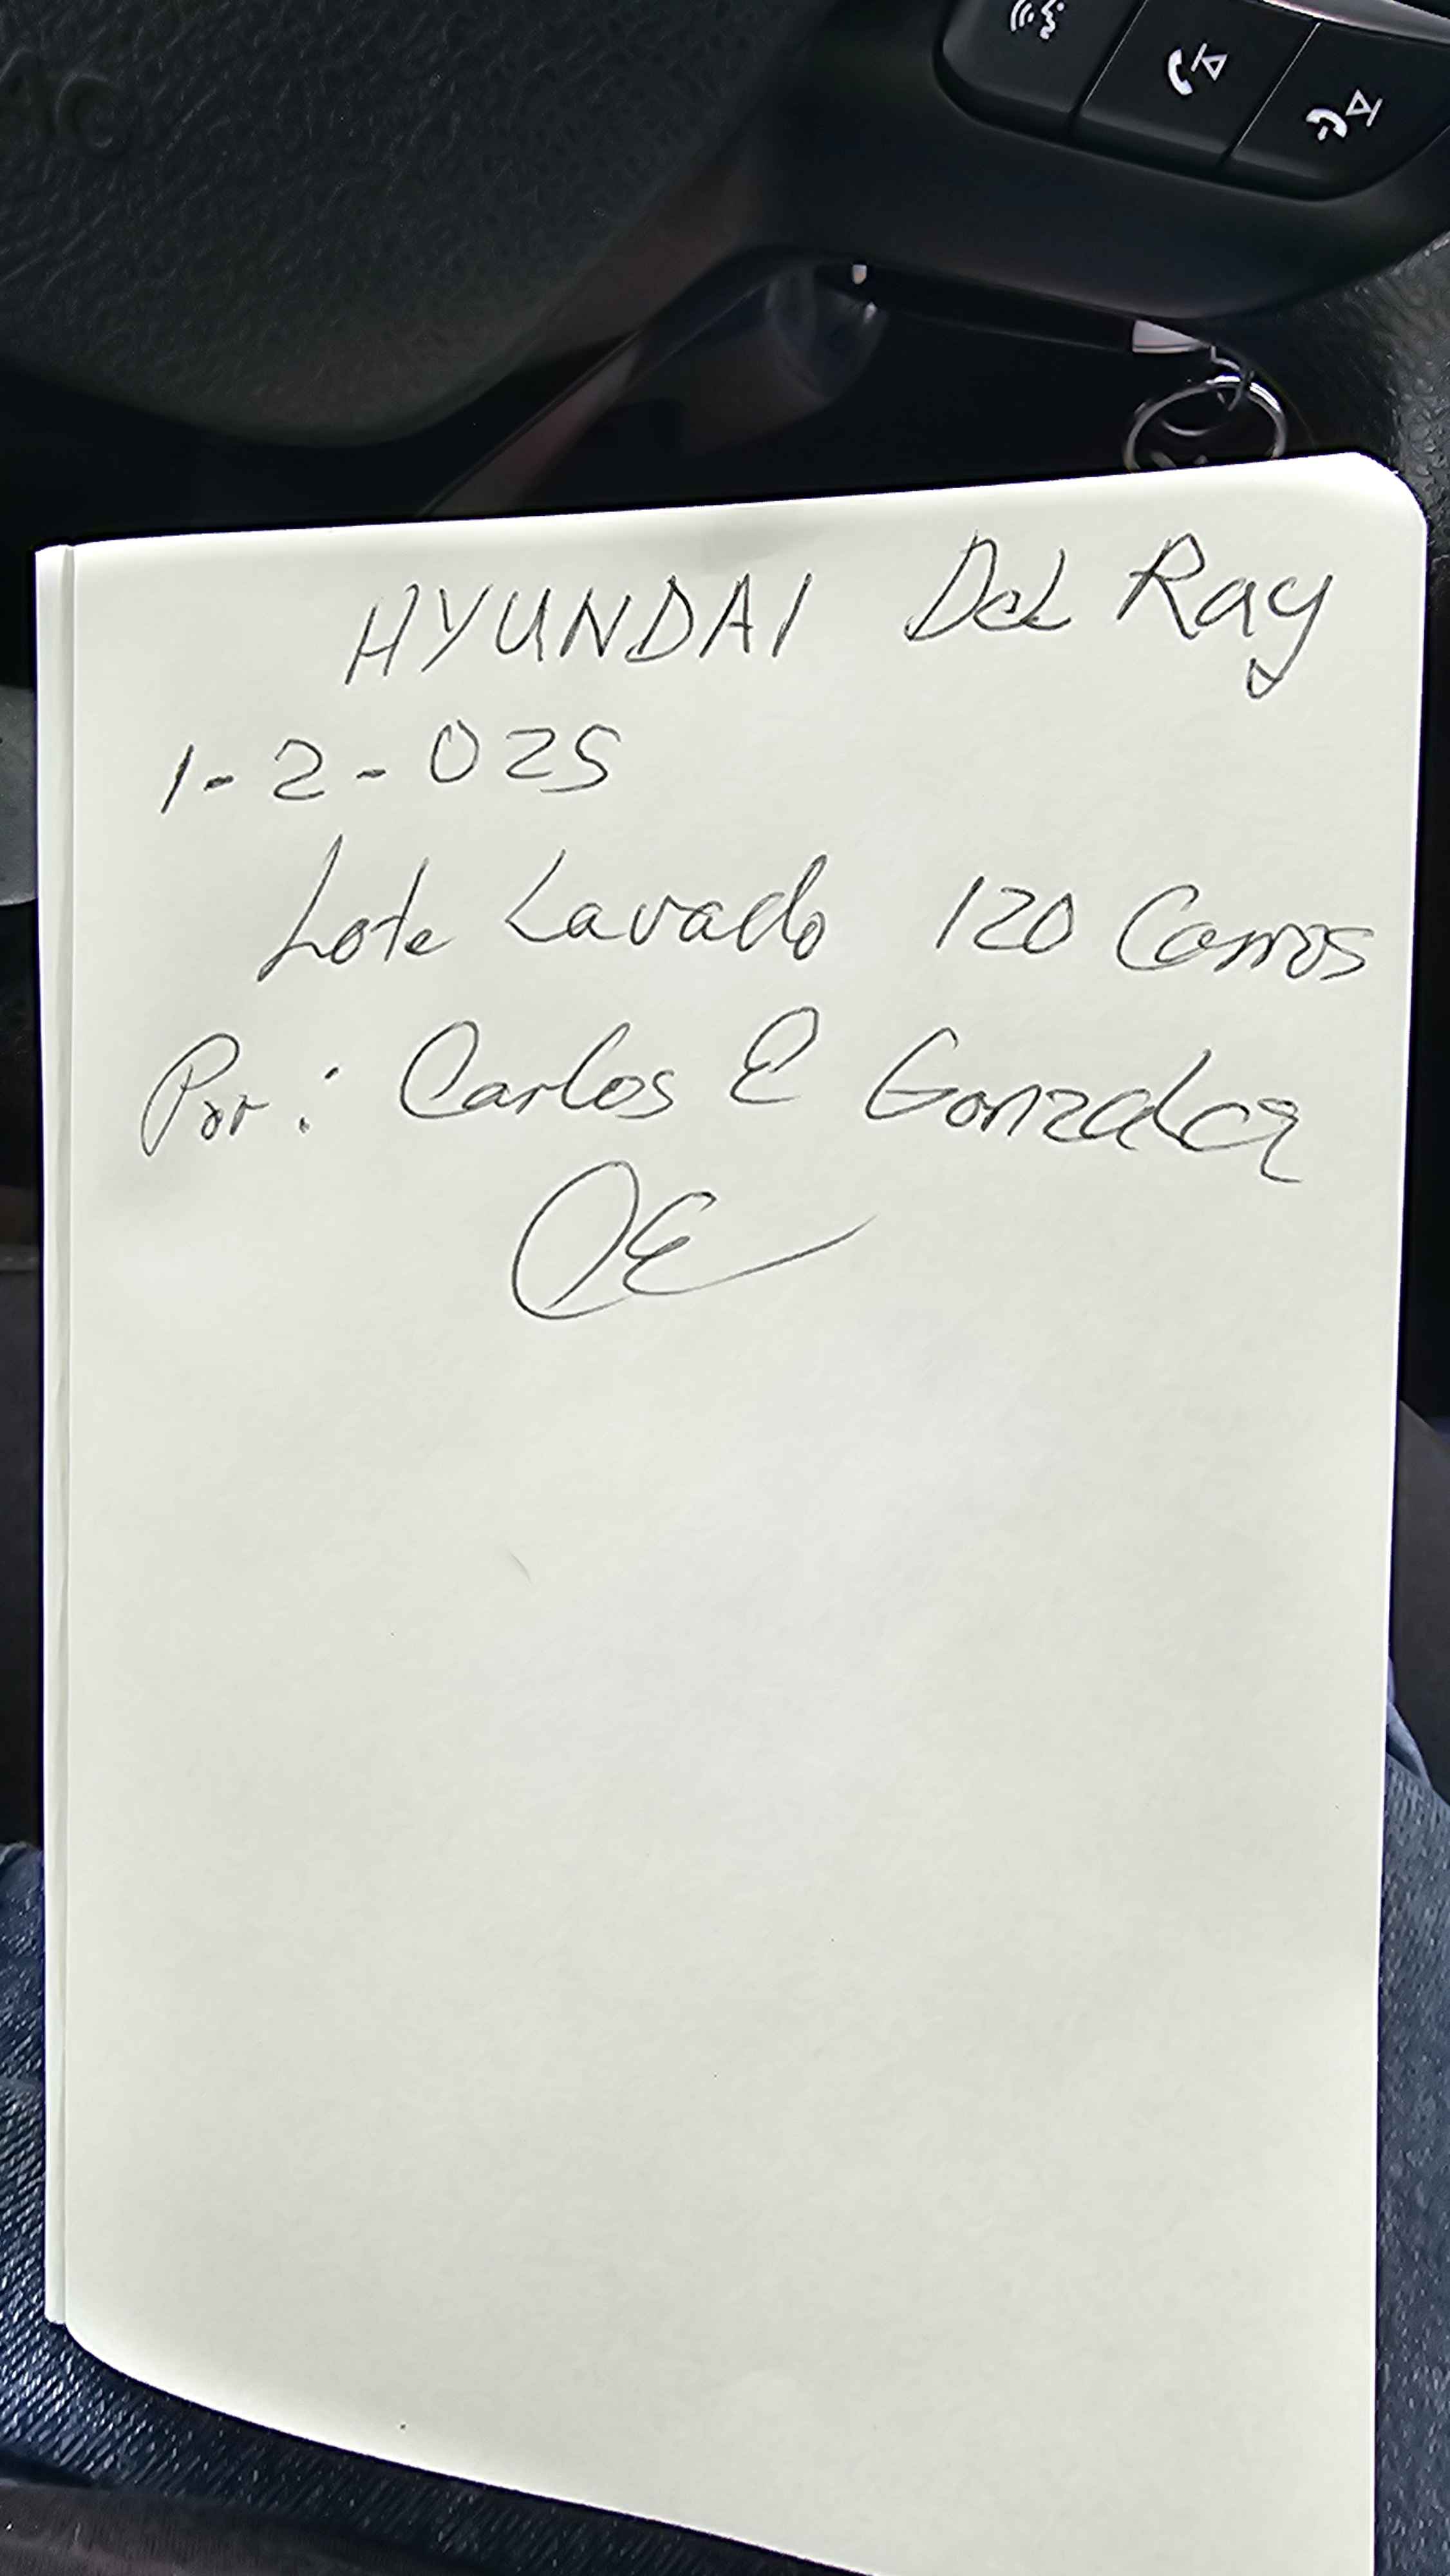 HYUNDAI Del Ray
1-2-025
Lote Lavado 120 Carros
Por: Carlos E Gonzalez